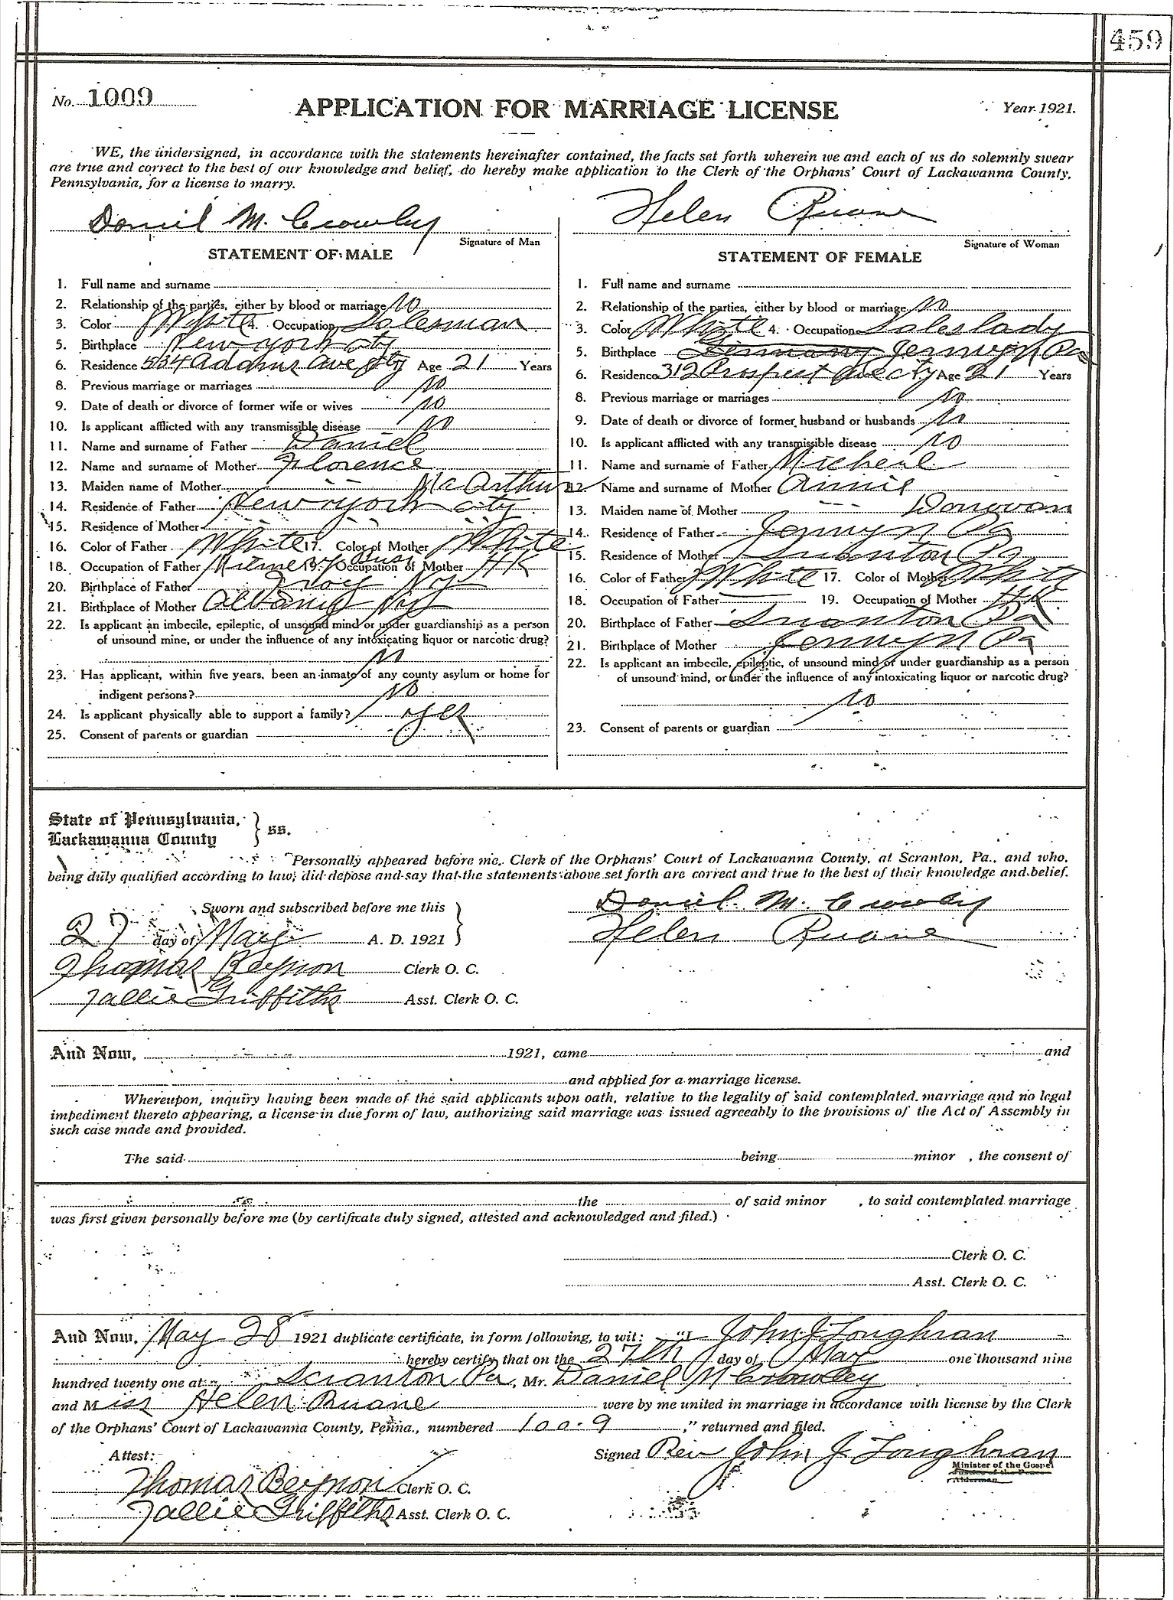 459
No. 1009 APPLICATION FOR MARRIAGE LICENSE Year 1921.
WE, the undersigned, in accordance with the statements hereinafter contained, the facts set forth wherein we and each of us do solemnly swear
are true and correct to the best of our knowledge and belief, do hereby make application to the Clerk of the Orphans' Court of Lackawanna County,
Pennsylvania, for a license to marry.
Daniel M. Crowley
Signature of Man
STATEMENT OF MALE
1. Full name and surname
2. Relationship of the parties, either by blood or marriage No
3. Color White 4. Occupation Salesman
5. Birthplace New York City
6. Residence 534 Adams Ave City Age 21 Years
8. Previous marriage or marriages No
9. Date of death or divorce of former wife or wives No
10. Is applicant afflicted with any transmissible disease No
11. Name and surname of Father Daniel
12. Name and surname of Mother Florence
13. Maiden name of Mother McArthur
14. Residence of Father New York City
15. Residence of Mother
16. Color of Father White 17. Color of Mother White
18. Occupation of Father 19. Occupation of Mother HK
20. Birthplace of Father Troy NY
21. Birthplace of Mother Albany NY
22. Is applicant an imbecile, epileptic, of unsound mind or under guardianship as a person
of unsound mine, or under the influence of any intoxicating liquor or narcotic drug?
No
23. Has applicant, within five years, been an inmate of any county asylum or home for
indigent persons? No
24. Is applicant physically able to support a family? yes
25. Consent of parents or guardian
Helen Ruane
Signature of Woman
STATEMENT OF FEMALE
1. Full name and surname
2. Relationship of the parties, either by blood or marriage No
3. Color White 4. Occupation Saleslady
5. Birthplace Germany Jermyn Pa
6. Residence 312 Prospect Ave City Age 21 Years
8. Previous marriage or marriages No
9. Date of death or divorce of former husband or husbands No
10. Is applicant afflicted with any transmissible disease No
11. Name and surname of Father Micheal
12. Name and surname of Mother Annie
13. Maiden name of Mother Donovan
14. Residence of Father Jermyn Pa
15. Residence of Mother Scranton Pa
16. Color of Father White 17. Color of Mother White
18. Occupation of Father 19. Occupation of Mother HK
20. Birthplace of Father Scranton Pa
21. Birthplace of Mother Jermyn Pa
22. Is applicant an imbecile, epileptic, of unsound mind or under guardianship as a person
of unsound mind, or under the influence of any intoxicating liquor or narcotic drug?
No
23. Consent of parents or guardian
State of Pennsylvania,
Lackawanna County } ss.
Personally appeared before me, Clerk of the Orphans' Court of Lackawanna County, at Scranton, Pa., and who,
being duly qualified according to law, did depose and say that the statements above set forth are correct and true to the best of their knowledge and belief.
Sworn and subscribed before me this
27 day of May A. D. 1921
Thomas Beynon Clerk O. C.
Tallie Griffiths Asst. Clerk O. C.
Daniel M. Crowley
Helen Ruane
And Now, 1921, came and
and applied for a marriage license.
Whereupon, inquiry having been made of the said applicants upon oath, relative to the legality of said contemplated marriage and no legal
impediment thereto appearing, a license in due form of law, authorizing said marriage was issued agreeably to the provisions of the Act of Assembly in
such case made and provided.
The said being minor , the consent of
the of said minor , to said contemplated marriage
was first given personally before me (by certificate duly signed, attested and acknowledged and filed.)
Clerk O. C.
Asst. Clerk O. C.
And Now, May 28 1921 duplicate certificate, in form following, to wit: "I John J Loughran
hereby certify that on the 27th day of May one thousand nine
hundred twenty one at Scranton Pa, Mr. Daniel M Crowley
and Miss Helen Ruane were by me united in marriage in accordance with license by the Clerk
of the Orphans' Court of Lackawanna County, Penna., numbered 1009 ," returned and filed.
Attest: Signed Rev John J Loughran
Minister of the Gospel
Justice of the Peace
Alderman
Thomas Beynon Clerk O. C.
Tallie Griffiths Asst. Clerk O. C.